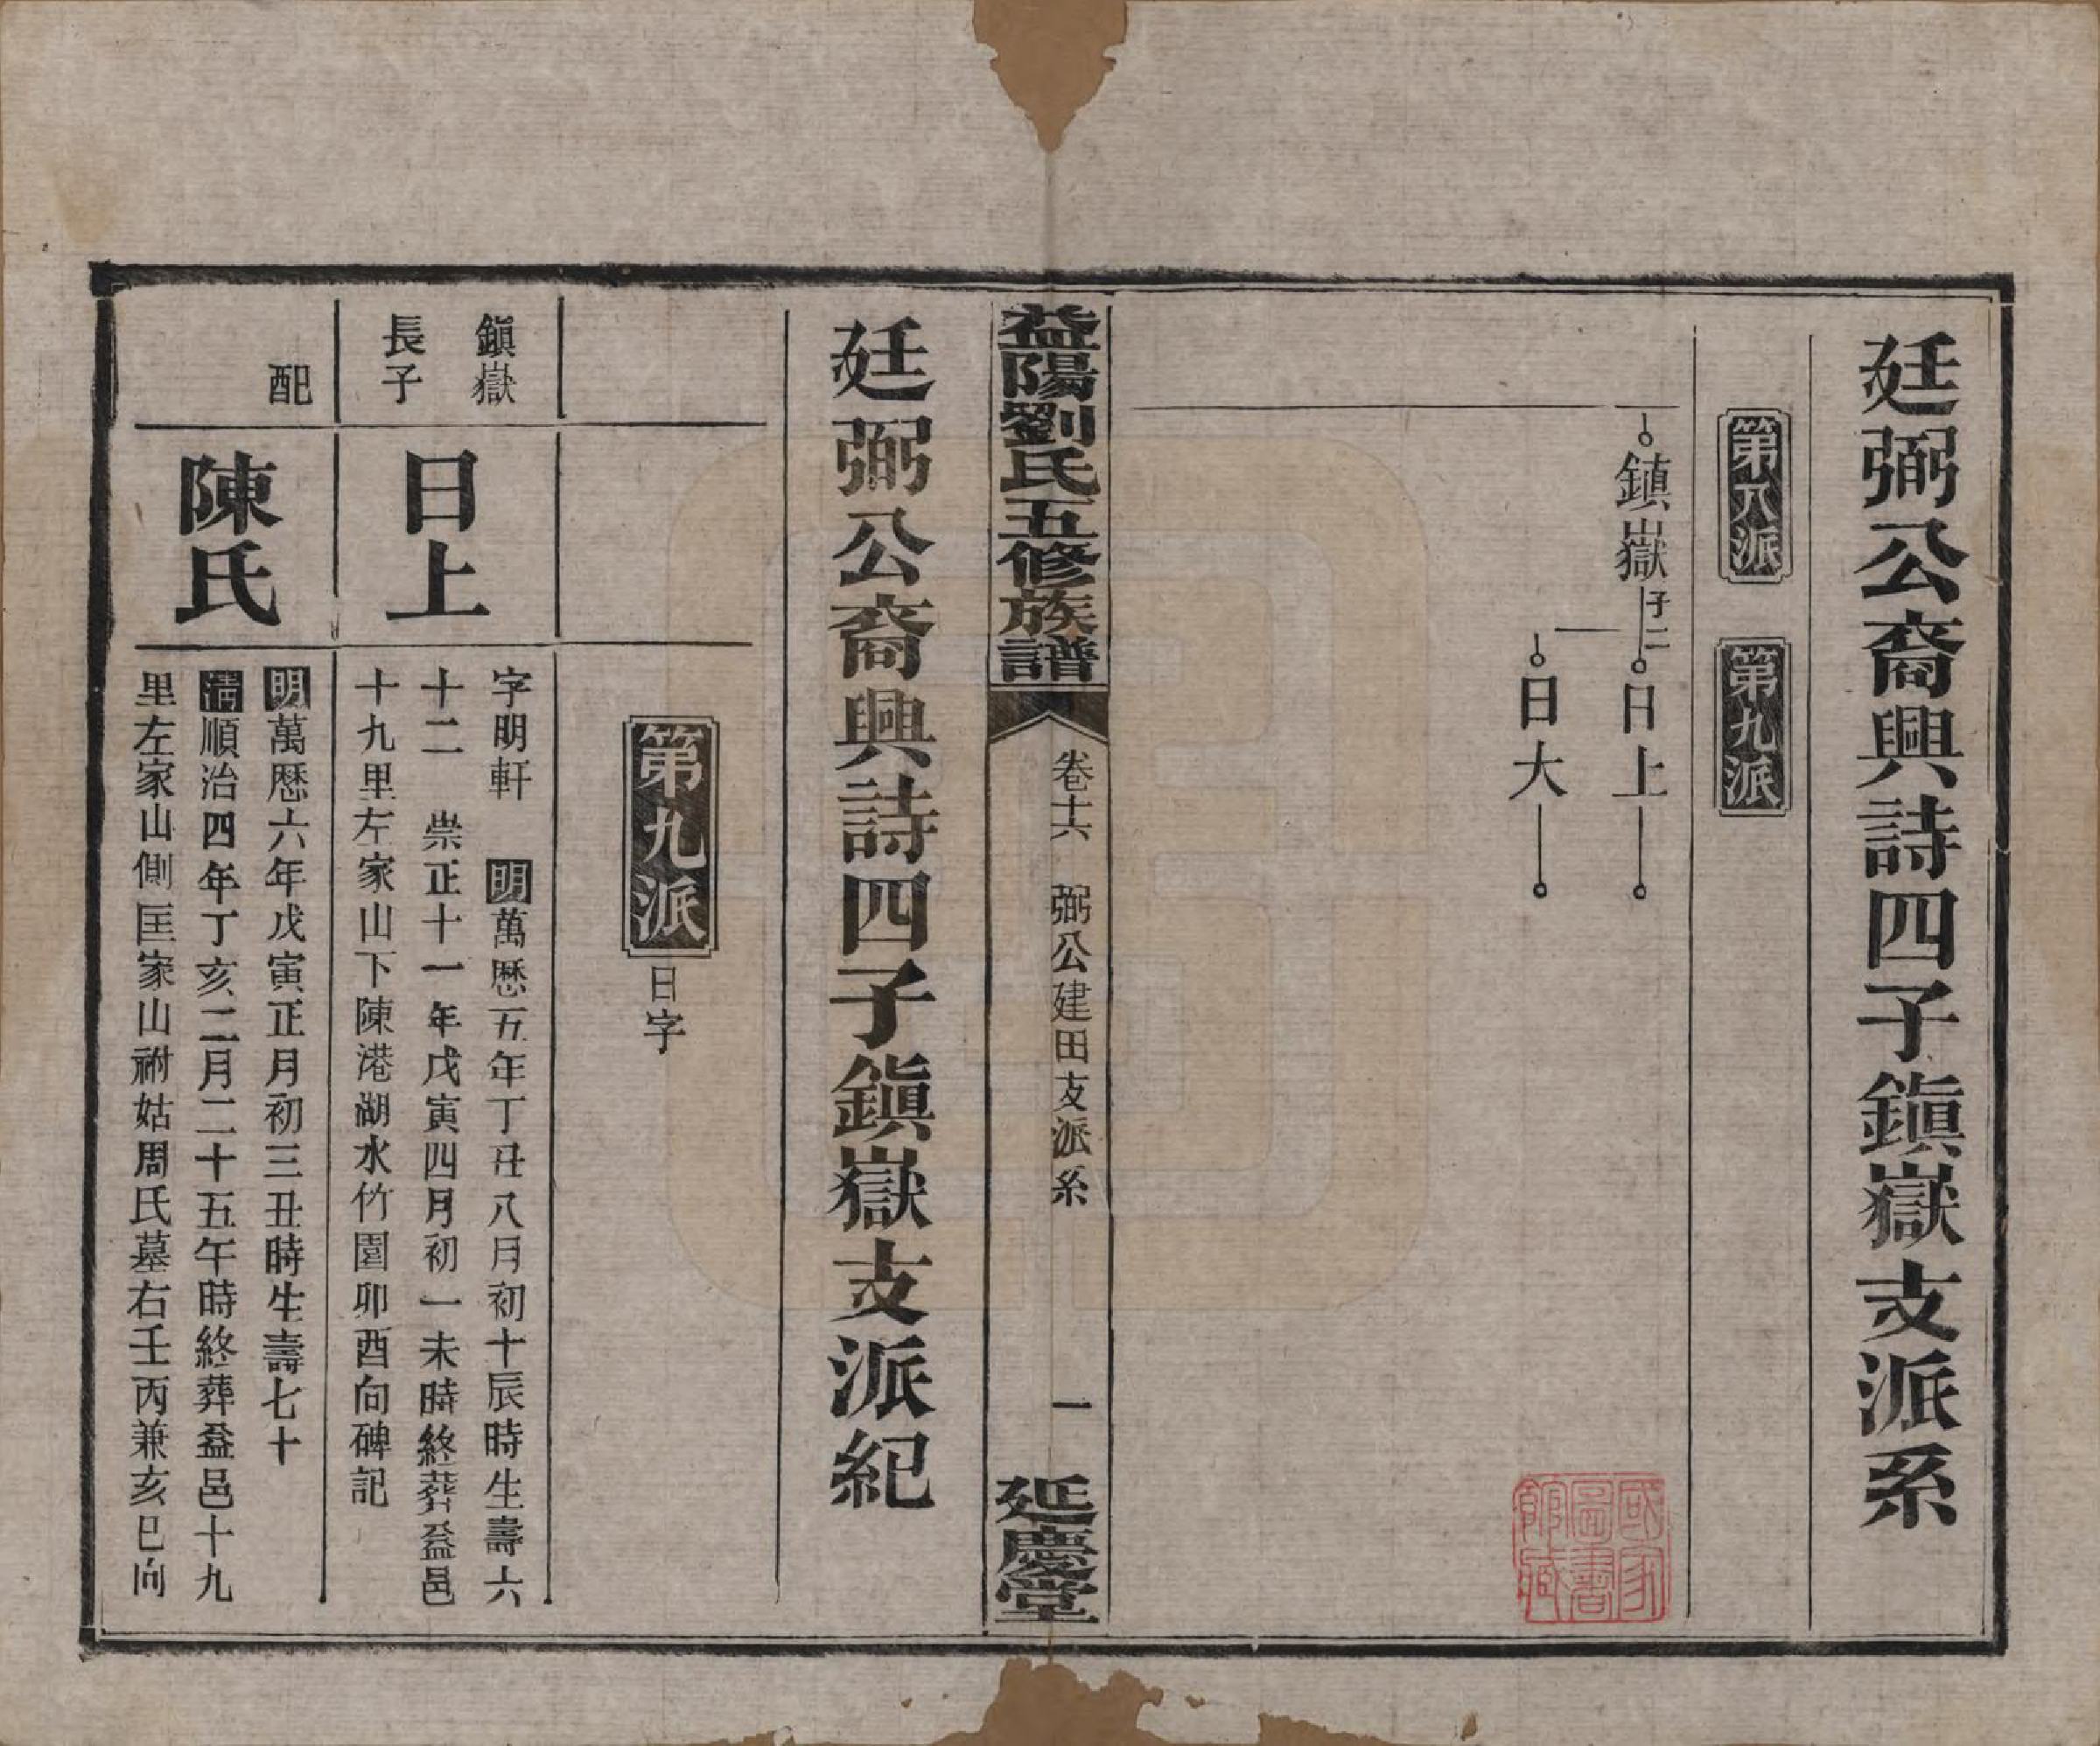 廷弼公裔興詩四子鎮嶽支派系
第八派
第九派
鎮嶽子二
日上
日大
國家圖書館藏
益陽劉氏五修族譜
卷十六 弼公建田支派系 一
延慶堂
廷弼公裔興詩四子鎮嶽支派紀
第九派日字
鎮嶽
長子
日上
字明軒 明萬歷五年丁丑八月初十辰時生壽六
十二 崇正十一年戊寅四月初一未時終葬益邑
十九里左家山下陳港湖水竹園卯酉向碑記
配
陳氏
明萬歷六年戊寅正月初三丑時生壽七十
清順治四年丁亥二月二十五午時終葬益邑十九
里左家山側匡家山祔姑周氏墓右壬丙兼亥巳向